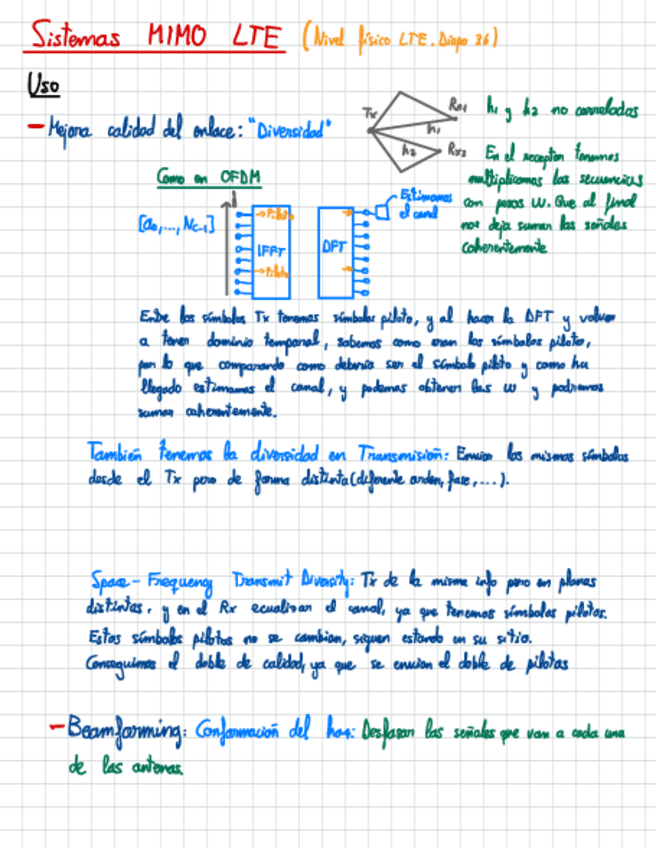 Sistemas MIMO LTE (Nivel físico LTE. Diapo 36)
Uso
- Mejora calidad del enlace: "Diversidad"
Tx
Rx1
h1
h2
Rx2
h1 y h2 no correladas
En el receptor tenemos
multiplicamos las secuencias
con pesos W. Que al final
nos deja sumar las señales
coherentemente
Como en OFDM
[a0,..., Nc-1]
Piloto
IFFT
Piloto
DFT
Estimamos
el canal
Entre los símbolos Tx tenemos símbolos piloto, y al hacer la DFT y volver
a tener dominio temporal, sabemos como eran los símbolos piloto,
por lo que comparando como debería ser el símbolo piloto y como ha
llegado estimamos el canal, y podemos obtener las w y podremos
sumar coherentemente.
También tenemos la diversidad en Transmisión: Enviar los mismos símbolos
desde el Tx pero de forma distinta (diferente orden, fase, ...).
Space-Frequency Transmit Diversity: Tx de la misma info pero en planos
distintos, y en el Rx ecualizar el canal, ya que tenemos símbolos pilotos.
Estos símbolos pilotos no se cambian, siguen estando en su sitio.
Conseguimos el doble de calidad, ya que se envian el doble de pilotos
- Beamforming: Conformación del haz: Desfasar las señales que van a cada una
de las antenas.